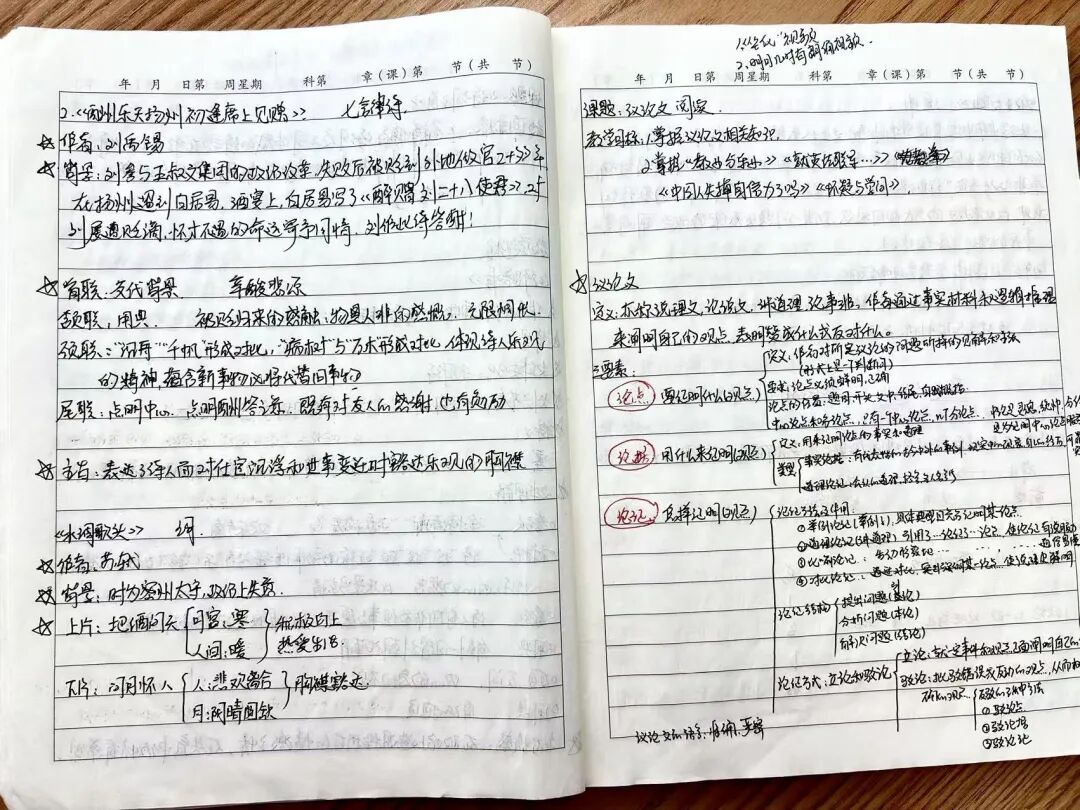 年 月 日第 周星期 科第 章(课)第 节(共 节)
2.《酬乐天扬州初逢席上见赠》 七言律诗
☆ 作者:刘禹锡
☆ 背景:刘参与王叔文集团的政治改革,失败后被贬到外地做官二十多年
在扬州遇到白居易,酒宴上,白居易写了《醉赠刘二十八使君》,对
刘屡遭贬谪,怀才不遇的命运寄予同情,刘作此诗答谢!
☆ 首联:交代背景 辛酸悲凉
颔联:用典 被贬归来的感触,物是人非的感慨。无限惆怅
颈联:"沉舟""千帆"形成对比,"病树"与万木形成对比 体现诗人乐观
的精神,蕴含新事物必将代替旧事物
尾联:点明中心 点明酬答之意。既有对友人的感谢,也有勉励
☆ 主旨:表达了诗人面对仕宦沉浮和世事变迁时豁达乐观的胸襟
《水调歌头》 词
☆ 作者:苏轼
☆ 背景:时为密州太守,政治上失意
☆ 上片:把酒问天 月宫:寒 积极向上
人间:暖 热爱生活
下片:对月怀人 人:悲欢离合 胸襟豁达
月:阴晴圆缺
2、明月几时有 视频
年 月 日第 周星期 科第 章(课)第 节(共 节)
课题:议论文 阅读
教学目标:1.掌握议论文相关知识
2.掌握《敬业与乐业》《就英法联军…》
《中国人失掉自信力了吗》《怀疑与学问》
☆ 议论文
定义:亦称说理文,论说文,讲道理,论事非,作者通过事实材料和逻辑推理
来阐明自己的观点,表明赞成什么或反对什么。
三要素:
论点(要证明什么的观点) 定义:作者对所要议论的问题所持的见解和主张
(形式上是一个判断句)
要求:论点必须鲜明,正确
论点的位置:题目、开头、文中、结尾、自己概括
论据(用什么来证明观点) 定义:用来证明论点的事实和道理
类型 事实论据:
道理论据:
论证(怎样证明观点) 论证方法及作用
①举例论证(举例子),具体典型有力地证明某一论点
②道理论证(讲道理)引用了…论证了…论点,使论证有说服力
③比喻论证:生动形象地……
④对比论证:通过对比,突出强调某一论点,使说理更鲜明
论证结构 提出问题(引论)
分析问题(本论)
解决问题(结论)
论证方式:立论和驳论 立论:就一定事件和观点正面阐明自己的
驳论:批驳错误或反动的观点,从而树
①驳论点
②驳论据
③驳论证
议论文的语言:准确、严密